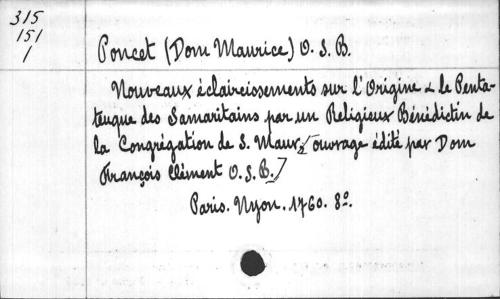 315
151
1
Poncet (Dom Maurice) O. S. B.
Nouveaux éclaircissements sur l'Origine & le Penta-
teuque des Samaritains par un Religieux Bénédictin de
la Congrégation de S. Maur, [ouvrage édité par Dom
François Clément O. S. B.]
Paris. Nyon. 1760. 8º.